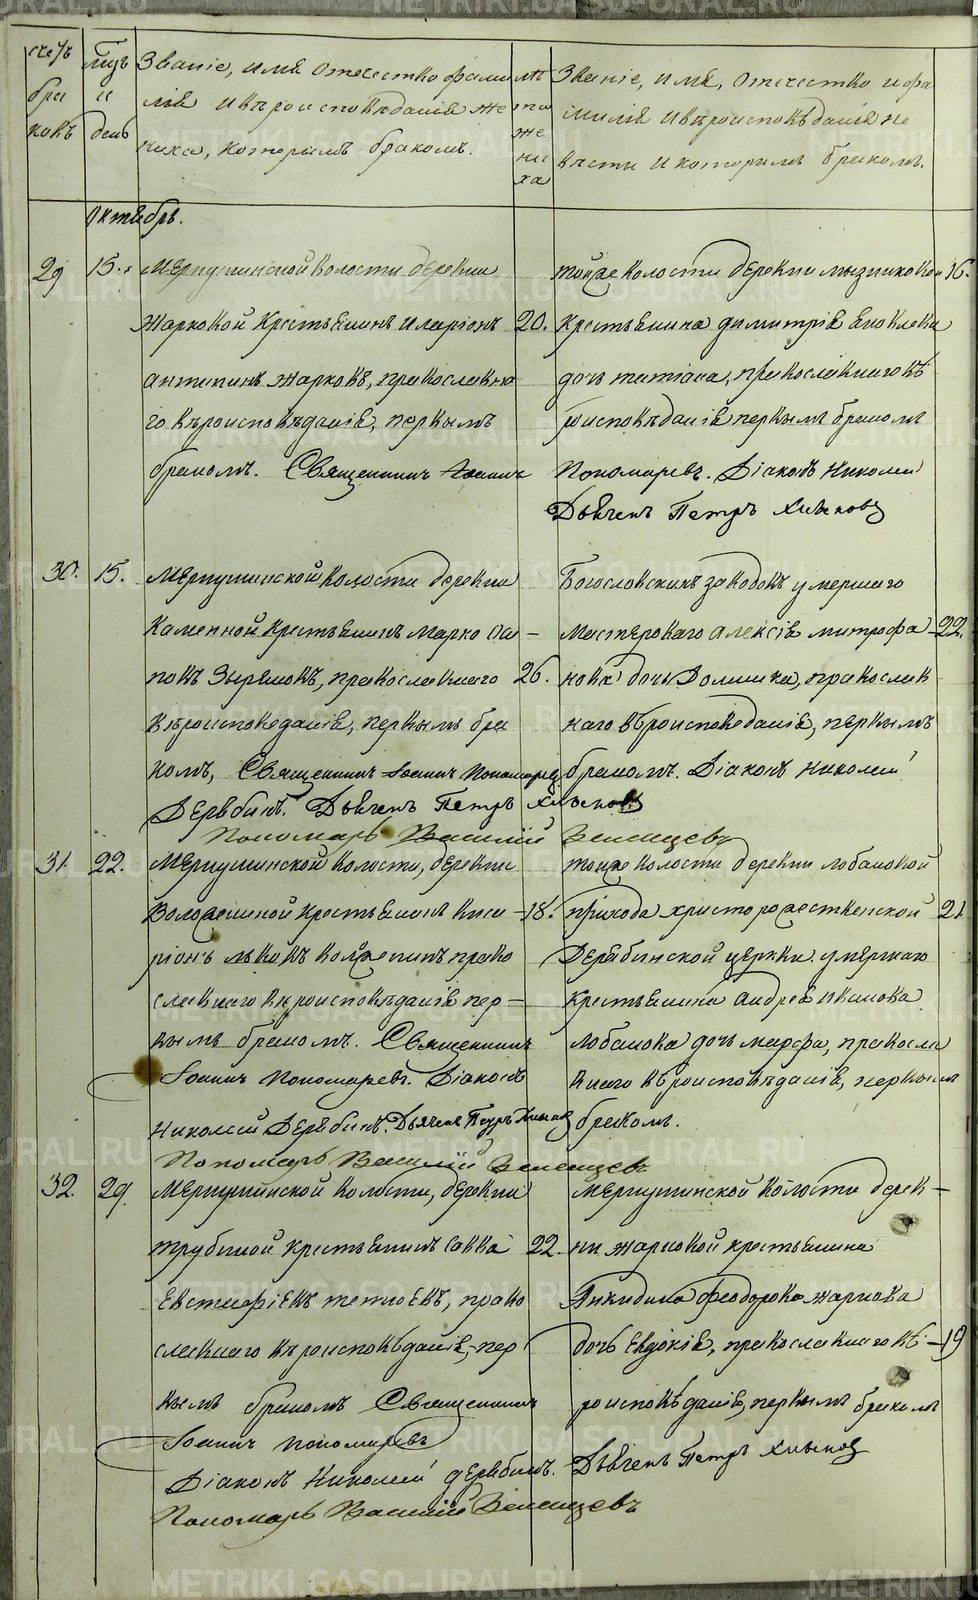 METRIKI.GASO-URAL.RU
счетъ браковъ
Мцъ и день
Званіе, имя отечество фамилія и вѣроисповѣданія жениха, которымъ бракомъ.
лѣта жениха
Званіе, имя, отечество и фамилія и вѣроисповѣданія невѣсты и которымъ бракомъ.
Октябрь.
29
15.
Меркушинской волости деревни
Жарковой Крестьянинъ Иларіонъ
20.
антипинъ Жарковъ, православна
го вѣроисповѣданія, первымъ
бракомъ. Священникъ Іоаннъ
тойже волости деревни
16.
Крестьянина Димитрія
дочь татіана, православнаго вѣ
роисповѣданія первымъ бракомъ
Пономаревъ. Діаконъ Николай
Дьячекъ Петръ Хлынковъ
30.
15.
Меркушинской волости деревни
Каменной Крестьянинъ Марко Оси
повъ Зыряновъ, православнаго
26.
вѣроисповеданія, первымъ бра
комъ, Священникъ Іоаннъ Пономаревъ
Дерябинъ. Дьячекъ Петръ Хлынковъ
Пономарь Василій Зеленцевъ
Богословскихъ заводовъ умершаго
Мастероваго Алексія митрофа
22.
нова дочь Домника, православ
наго вѣроисповеданія, первымъ
бракомъ. Діаконъ Николай
31.
22.
Меркушинской волости, деревни
Крестьянинъ Кипи
18.
ріонъ львовъ право
славнаго вѣроисповѣданія пер
вымъ бракомъ. Священникъ
Іоаннъ Пономаревъ. Діаконъ
Николай Дерябинъ. Дьячекъ Петръ Хлынковъ
Пономарь Василій Зеленцевъ
тойже волости деревни лобановой
прихода христорождественской
21.
Дерябинской церкви умершаго
Крестьянина Андрея иванова
лобанова дочь марфа, правосла
внаго вѣроисповѣданія, первымъ
бракомъ.
32.
29.
Меркушинской волости, деревни
трубиной Крестьянинъ Савва
22.
Евстафіевъ право
славнаго вѣроисповѣданія, пер
вымъ бракомъ Священникъ
Іоаннъ Пономаревъ
Діаконъ Николай Дерябинъ.
Пономарь Василій Зеленцевъ
Меркушинской волости дерев
ни жарковой крестьянина
Никодима Феодорова жаркова
дочь Евдокія, православнаго вѣ
19
роисповѣданія, первымъ бракомъ
Дьячекъ Петръ Хлынковъ
METRIKI.GASO-URAL.RU